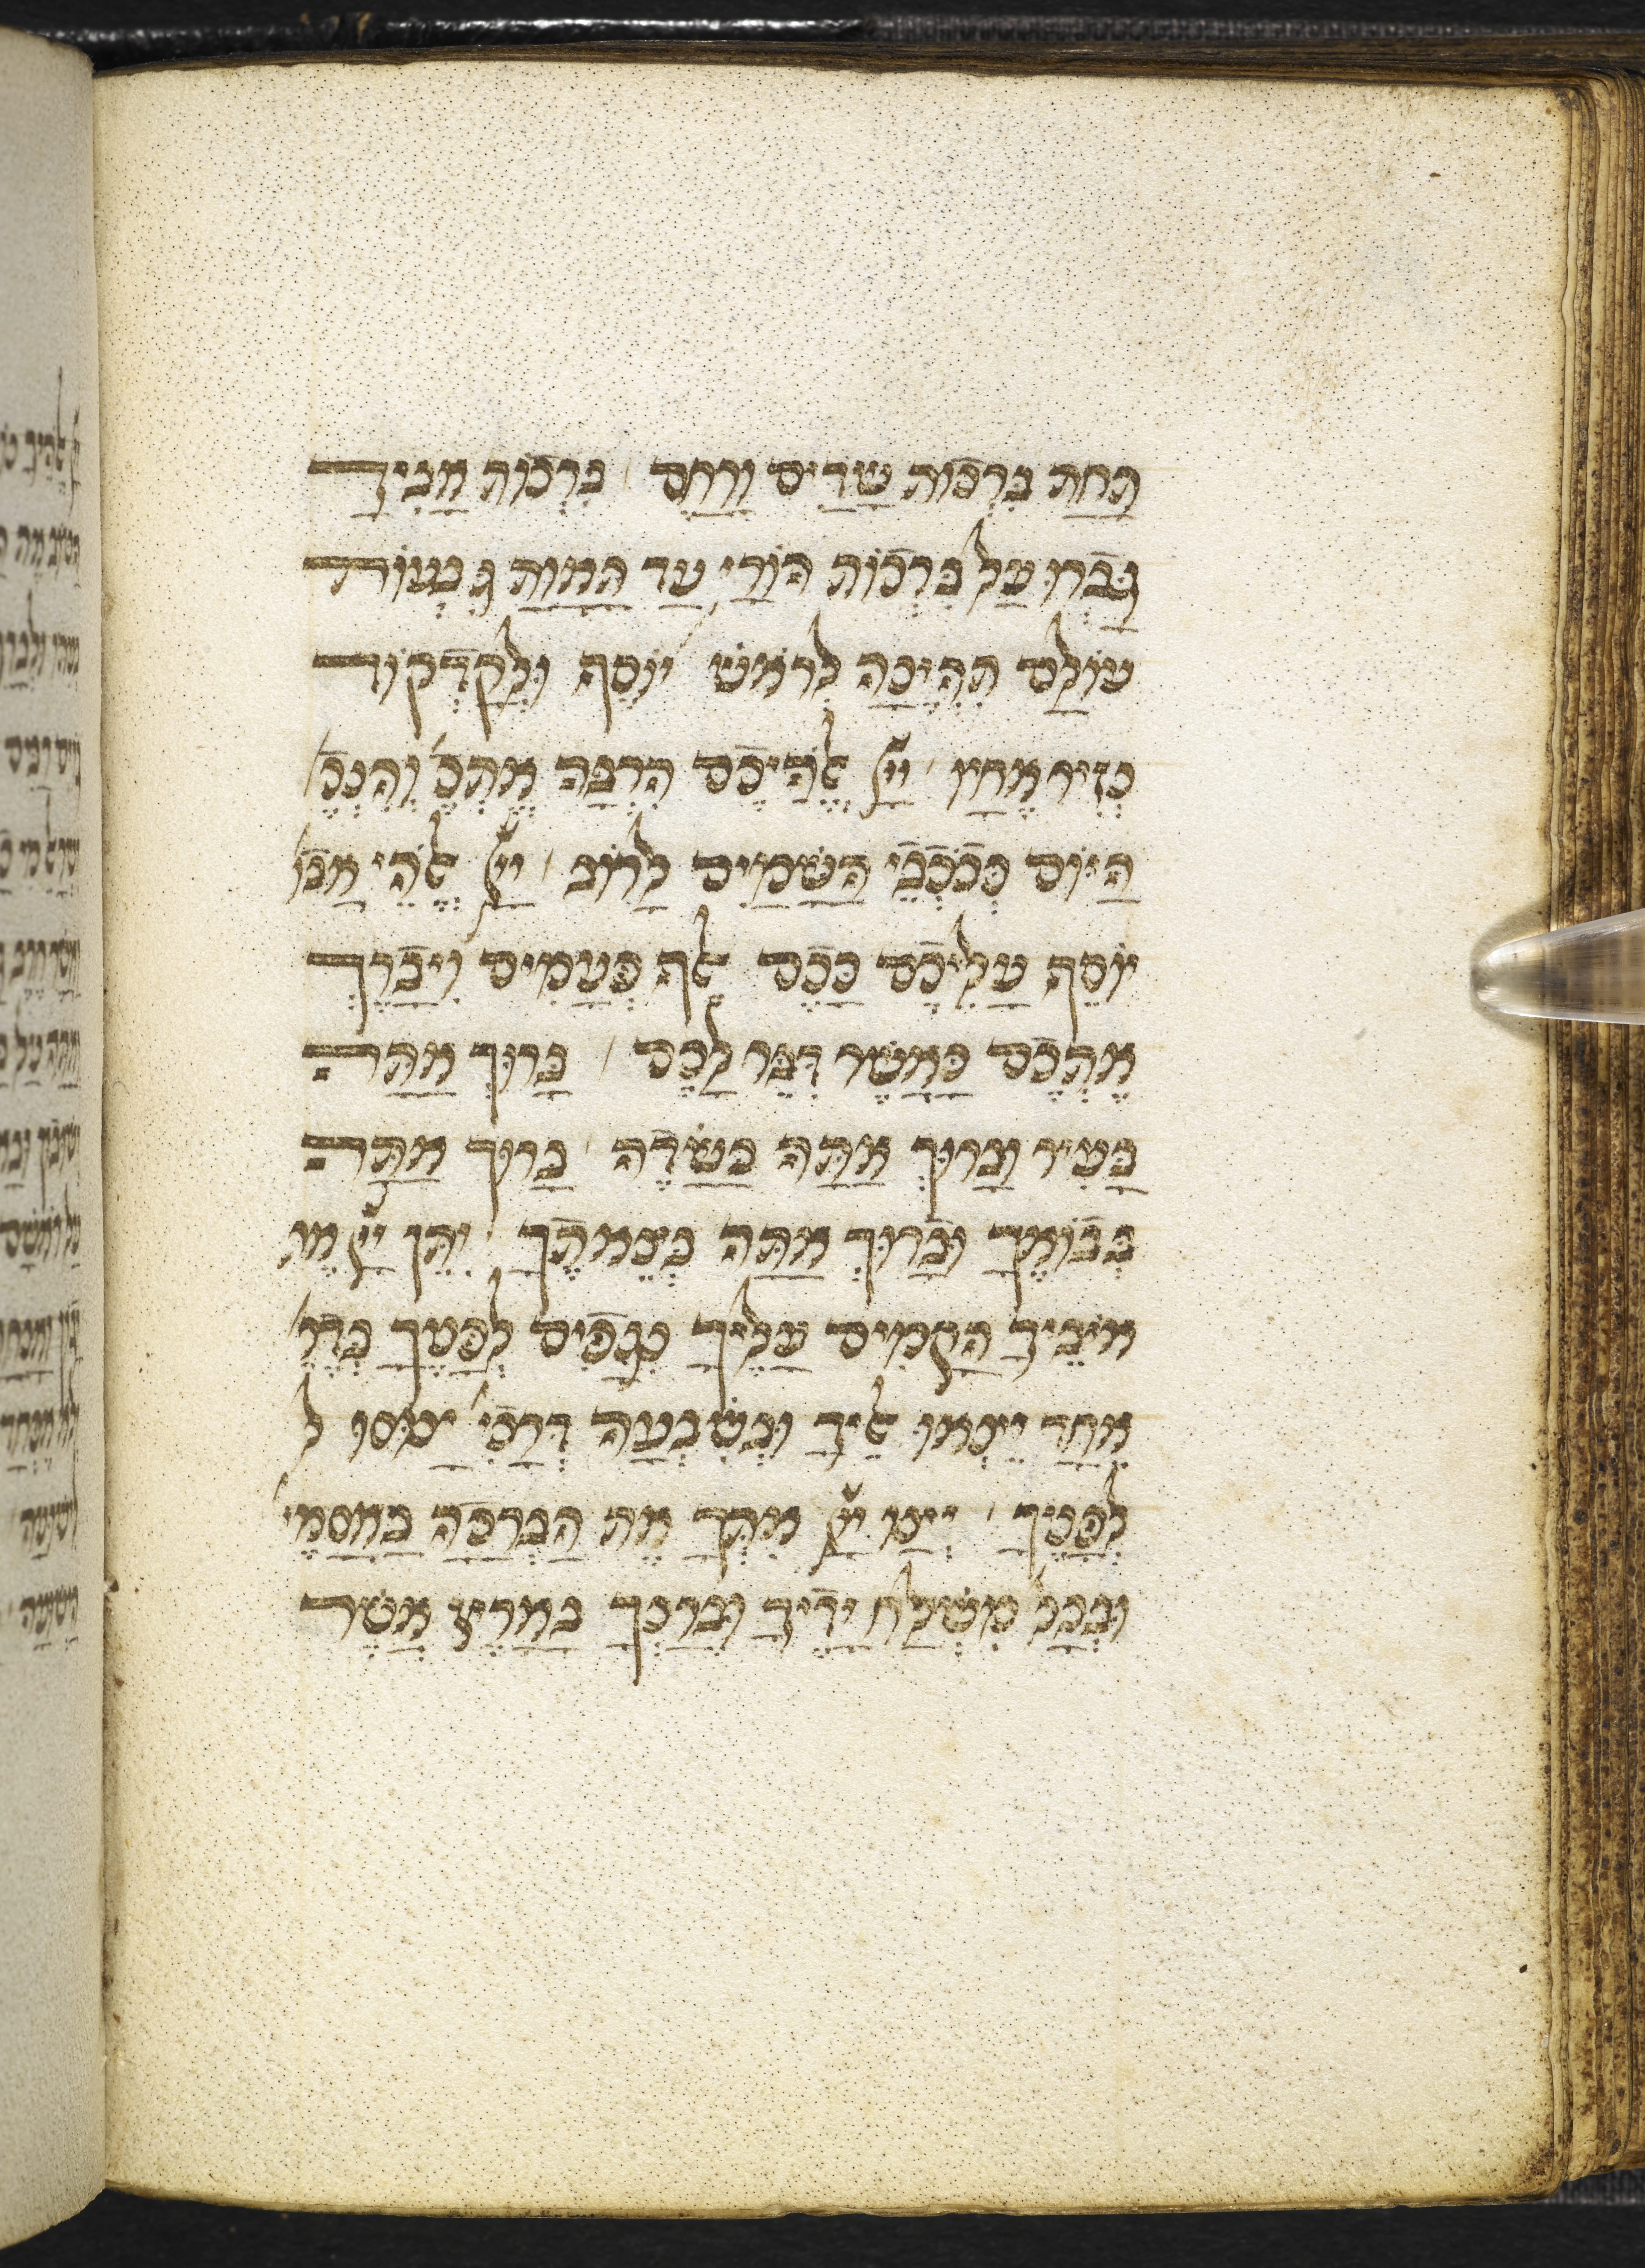 תַּחַת בִּרְכוֹת שָׁדַיִם וָרַחַם / בִּרְכוֹת אָבִיךָ
גָּבְרוּ עַל בִּרְכוֹת הוֹרַי עַד תַּאֲוַת גִּבְעוֹת
עוֹלָם תִּהְיֶינָה לְרֹאשׁ יוֹסֵף וּלְקָדְקוֹד
נְזִיר אֶחָיו / יְיָ אֱלֹהֵיכֶם הִרְבָּה אֶתְכֶ' וְהִנְּכֶ'
הַיּוֹם כְּכוֹכְבֵי הַשָּׁמַיִם לָרוֹב / יְיָ אֱלֹהֵי אֲבוֹ'
יוֹסֵף עֲלֵיכֶם כָּכֶם אֶלֶף פְּעָמִים וִיבָרֵךְ
אֶתְכֶם כַּאֲשֶׁר דִּבֶּר לָכֶם / בָּרוּךְ אַתָּה
בָּעִיר וּבָרוּךְ אַתָּה בַּשָּׂדֶה / בָּרוּךְ אַתָּה
בְּבוֹאֶךָ וּבָרוּךְ אַתָּה בְּצֵאתֶךָ / יִתֵּן יְיָ אֶת
אוֹיְבֶיךָ הַקָּמִים עָלֶיךָ נִגָּפִים לְפָנֶיךָ בְּדֶר'
אֶחָד יֵצְאוּ אֵלֶיךָ וּבְשִׁבְעָה דְּרָכִי' יָנוּסוּ ל
לְפָנֶיךָ / יְצַו יְיָ אִתְּךָ אֶת הַבְּרָכָה בַּאֲסָמֶי'
וּבְכָל מִשְׁלַח יָדֶיךָ וּבֵרַכְךָ בָּאָרֶץ אֲשֶׁר